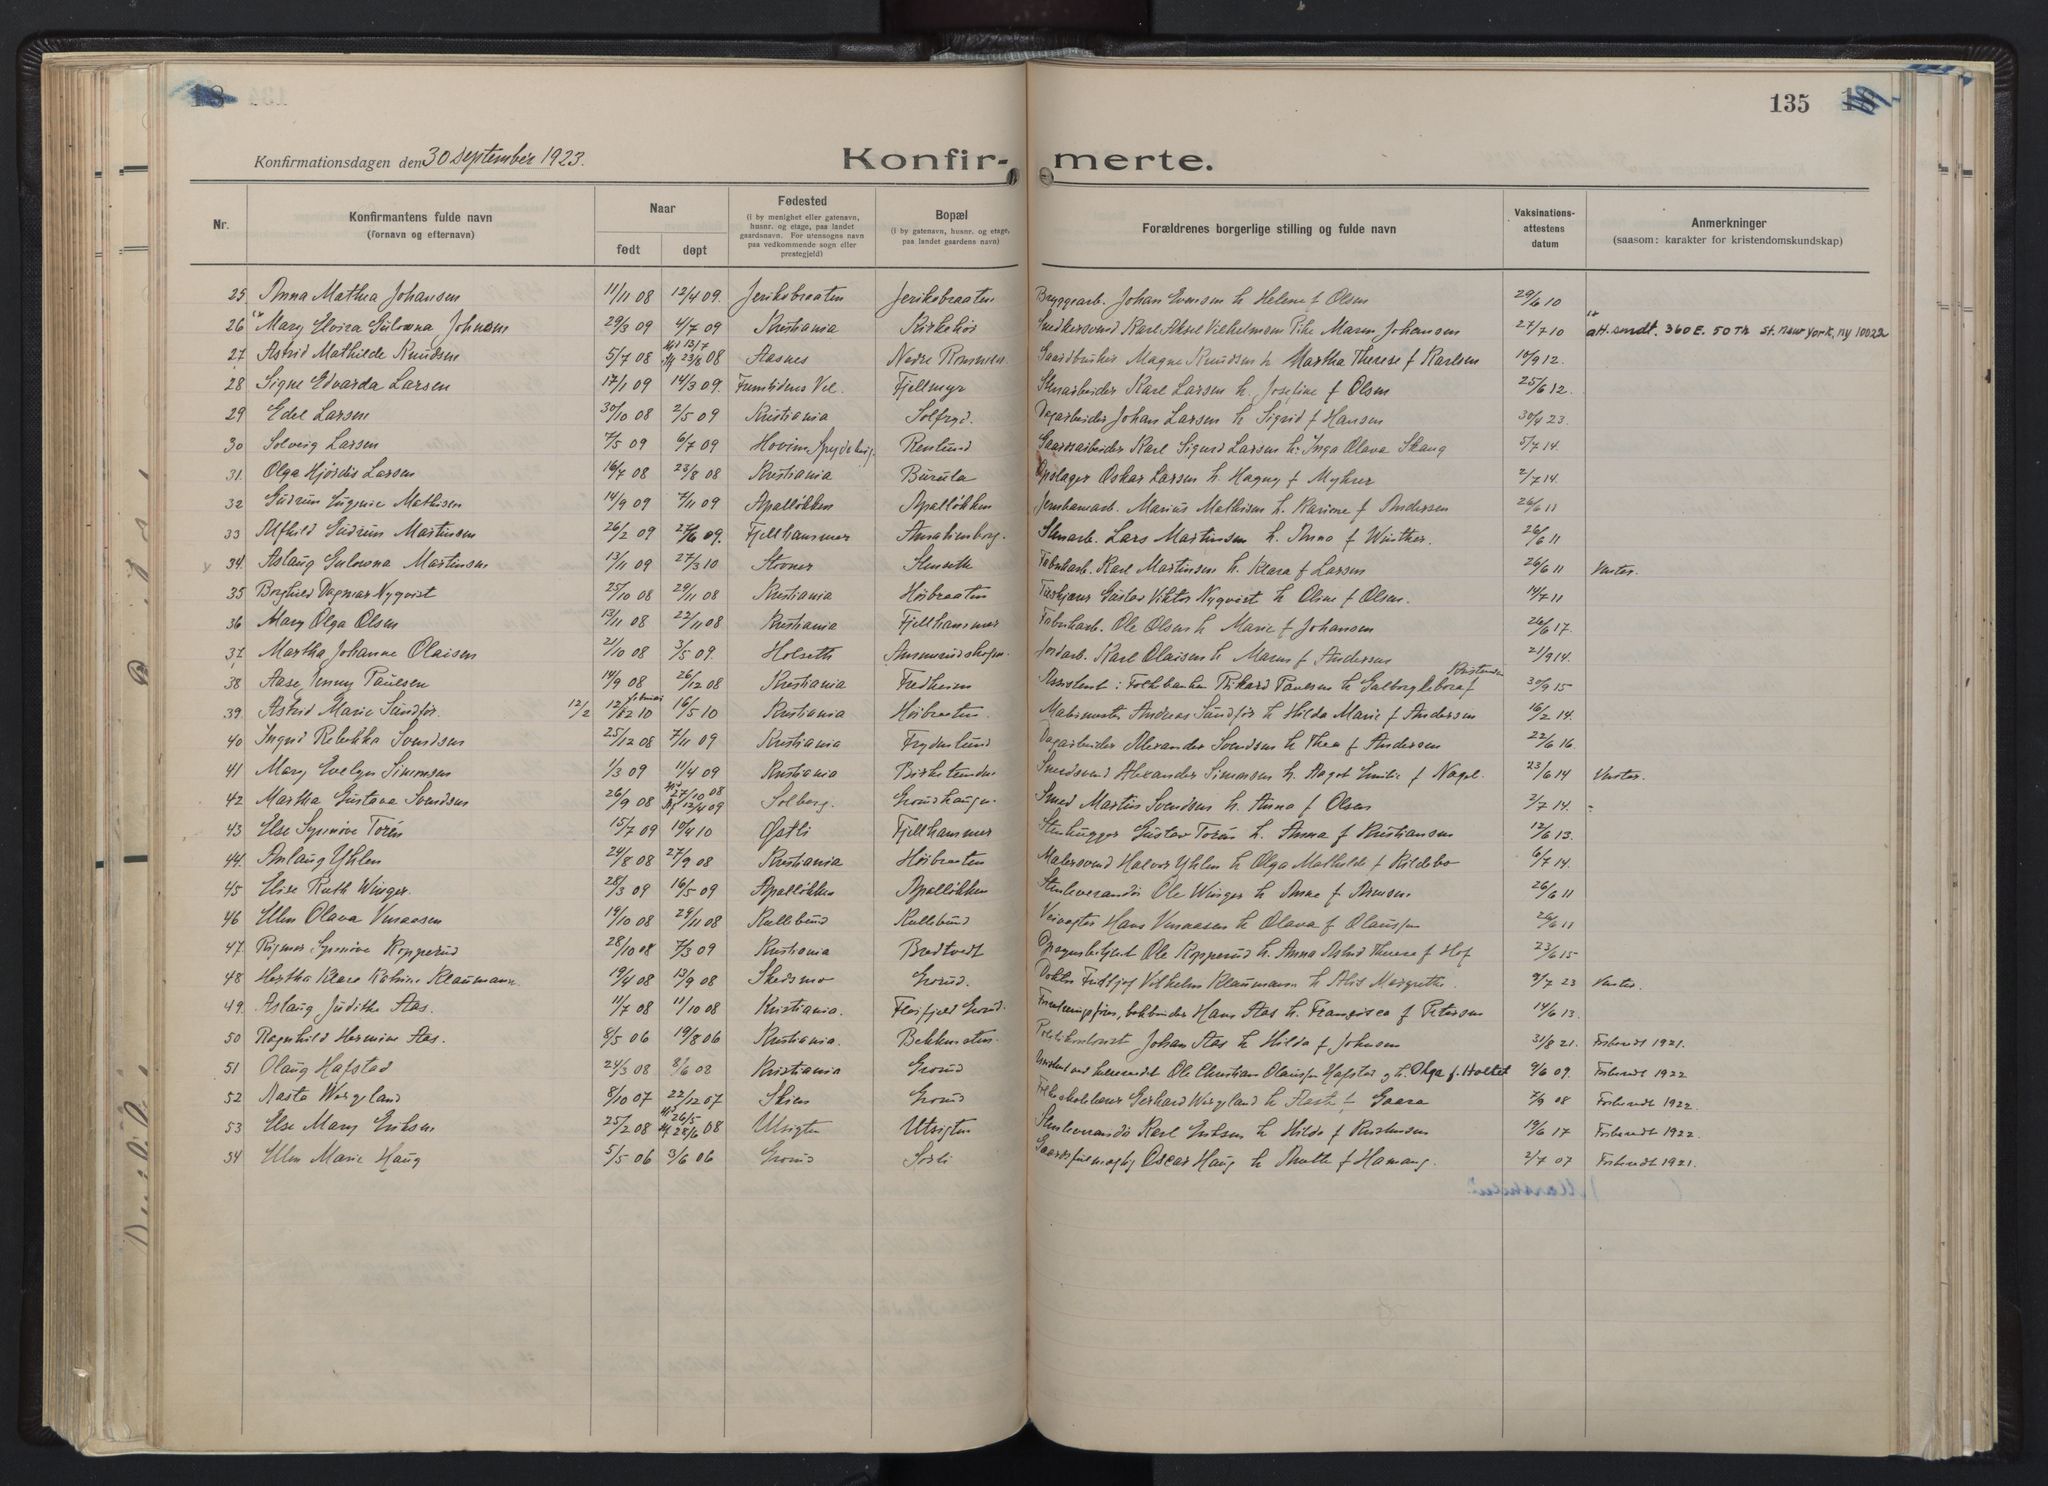 135
Konfirmationsdagen den 30 september 1923.
Konfir-merte.
Nr.
Konfirmantens fulde navn
(fornavn og efternavn)
Naar
født
døpt
Fødested
(i by menighet eller gatenavn,
husnr. og etage, paa landet
gaardsnavn. For utensogns navn
paa vedkommende sogn eller
prestegjeld)
Bopæl
(i by gatenavn, husnr. og etage,
paa landet gaardens navn)
Forældrenes borgerlige stilling og fulde navn
Vaksinations-
attestens
datum
Anmerkninger
(saasom: karakter for kristendomskundskap)
25 Anna Mathea Johansen 11/11 08 12/4 09. Jeriksbraaten Jeriksbraaten Bryggearb. Johan Evensen h Helene f Olsen 29/6 10
26 Mary Elvira Gulowna Johnsen 29/3 09 4/7 09 Kristiania Kirkehøi Snedkersvend Karl Aksel Vilhelmsen Pike Maren Johansen 27/7 10 att. sendt. 360 E. 50 Th St. New York, NY 10022
27 Astrid Mathilde Knudsen 5/7 08 23/8 08 Aasnes Nedre Rommen Gaardbruker Magne Knudsen h Martha Therese f Karlsen 12.
28 Signe Edvarda Larsen 17/1 09 14/3 09. Fremtidens Vel. Fjellmyr Stenarbeider Karl Larsen h. Josefine f Olsen 25/6 12.
29 Edel Larsen 30/10 08 2/5 09 Kristiania Solbryd. Dagarbeider Johan Larsen h Sigrid f Hansen 23.
30 Solveig Larsen 7/5 09 6/7 09 Hovin Spydeberg. Renlund Gaardsarbeider Karl Sigurd Larsen h. Inga Olava Skaug 5/7 14.
31. Olga Hjørdis Larsen 16/7 08 23/8 08 Kristiania Buråta Opslager Oskar Larsen h. Hagny f Myhrer 2/7 14.
32 Gudrun Eugenie Mathisen 14/9 09 7/11 09 Apalløkken Apalløkken Jernbanearb. Marius Mathisen h. Karine f Andersen 26/6 11
33 Alfhild Gudrun Martinsen 26/2 09 27/6 09. Fjellhammer Amalienborg. Stenarb. Lars Martinsen h. Anna f Winther. 26/6 11
34. Aslaug Gulowna Martinsen 13/11 09 27/3 10 Stovner Stenseth Fabrikarb. Karl Martinsen h. Klara f Larsen 26/6 11
35 Borghild Dagmar Nyqvist 25/10 08 29/11 08 Kristiania Høibraaten Gustav Viktor Nyqvist h Oline f Olsen. 11
36 Mary Olga Olsen 13/11 08 22/11 08 Kristiania Fjellhammer Fabrikarb. Ole Olsen h Marie f Johansen 26/6 17.
37. Martha Johanne Olaisen 2/10 08 3/5 09. Holseth Ammerudskogen. Jordarb. Karl Olaisen h Maren f Andersen 14.
38 Aase Jenny Paulsen 14/9 08 26/12 08 Kristiania Fredheim Assistent i Folkebanken Rikard Paulsen h f 15
39. Astrid Marie Sundfør. 12/2 12/2 10 februar 16/5 10 Kristiania Høibraaten. Andreas Sundfør h Hilda Marie f Andersen 16/2 14.
40 Ingrid Rebekka Svendsen 25/12 08 7/11 09 Kristiania Frydenlund Dagarbeider Alexander Svendsen h Thea f Andersen 22/6 16.
41 Mary Evelyn Simonsen 1/3 09 11/4 09 Kristiania Birkelunden Smedsvend Alexander Simonsen h. Aagot Emilie f Nagel. 23/6 14
42 Martha Gustava Svendsen 26/9 08 27/10 08 12/4 09 Solberg. Grorudhaugen Smed Martin Svendsen h. Anna f Olsen 2/7 14.
43 Else Synnøve Torén 15/7 09 10/4 10 Østli Fjellhammer Stenhugger Gustav Torén h. Anna f Kristiansen 12/6 13.
44. Anlaug Yhlen 24/8 08 27/9 08 Kristiania Høibraaten Malersvend Halvor Yhlen h Olga Mathilde f Kildebo 6/7 14.
45 Elise Ruth Winger. 28/3 09 16/5 09 Apalløkken Apalløkken Stenleverandør Ole Winger h Anna f Arnesen 26/6 11
46 Ellen Olava Venaasen 19/10 08 29/11 08 Kullebund Kullebund Veivogter Hans Venaasen h Olava f Olaussen 26/6 11
47. Rigmor Synnøve Kopperud 28/10 08 7/3 09 Kristiania Bredtvedt Ole Kopperud h. Anna Astrid Therese f Hof 23/6 15
48 Hertha Klara Katrine Klaumann 19/4 08 13/9 08 Skedsmo Grorud. Doktor Fridtjof Vilhelm Klaumann h Alis Margrethe. 9/7 23
49. Aslaug Judithe Aas. 11/7 08 11/10 08 Kristiania. Fleifjeld Grorud. bokbinder Hans Aas h. Francisca f Petersen 14/6 13.
50 Ragnhild Hermine Aas. 8/5 06 19/8 06 Kristiania. Bekkesten. Politikonst. Johan Aas h Hilda f Johnsen 31/8 21. Forberedt 1921.
51 Olaug Hafstad 24/3 08 8/6 08 Kristiania Grorud Ole Christian Olaussen Hafstad og h. Olga f. Holtet 9/6 09. Forberedt 1922
52 Aasta Wergeland 8/10 07 22/12 07 Skien Grorud Folkeskolelærer Gerhard Wergeland h Aasta f Gaara 7/9 08 Forberedt 1922.
53 Else Mary Eriksen 25/2 08 26/5 28/6 08 Utsigten Utsigten Stenleverandør Karl Eriksen h Hilda f Kristensen 19/6 17 Forberedt 1922.
54 Ellen Marie Haug 5/5 06 3/6 06 Grorud Sørli Gaardsfuldmægtig Oscar Haug h Ruth f Hamang. 2/7 07 Forberedt 1921.